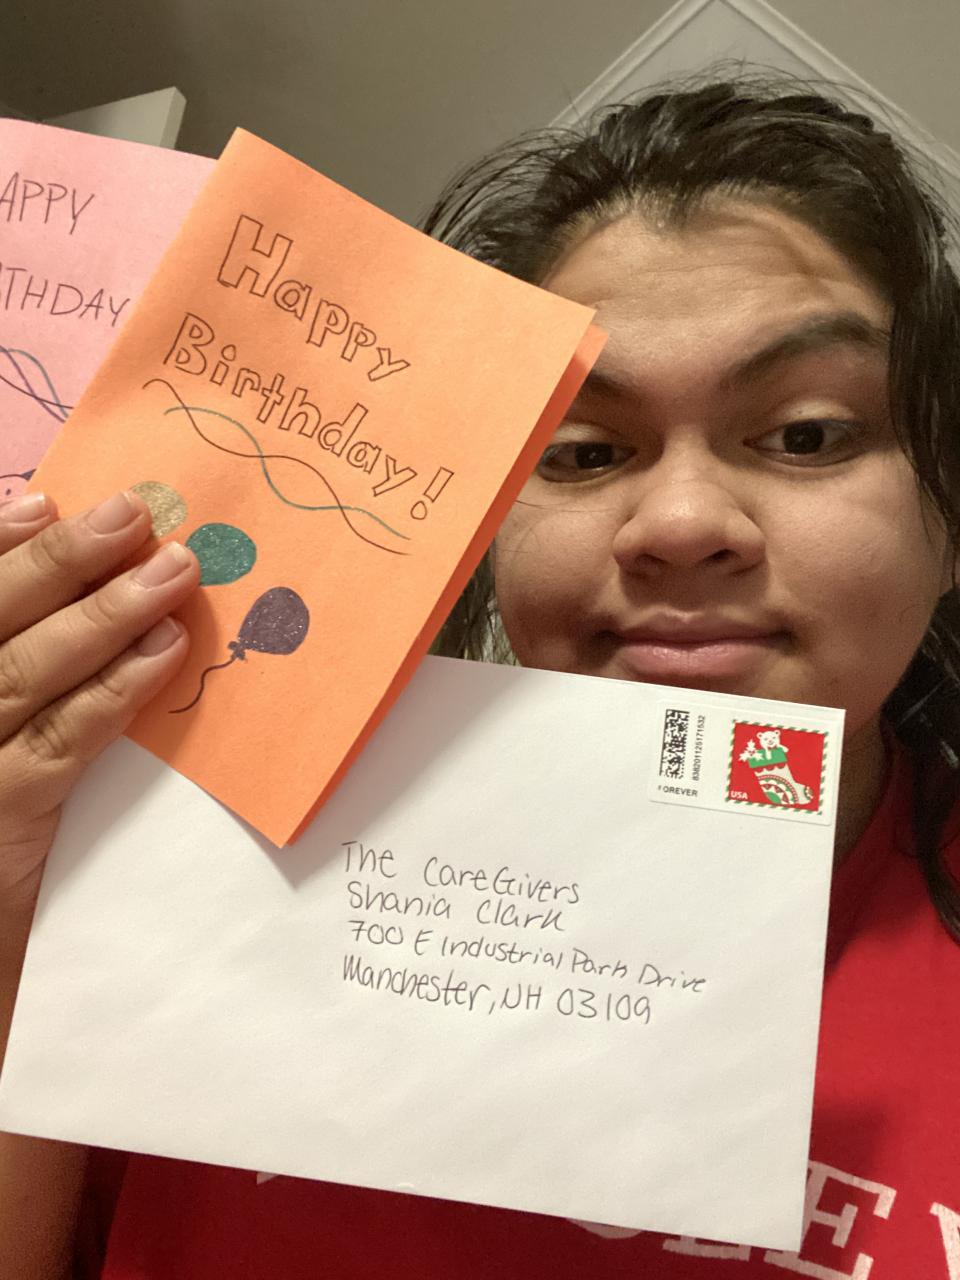 APPY
THDAY
Happy
Birthday!
838201125171532
FOREVER
USA
The CareGivers
Shania Clark
700 E Industrial Park Drive
Manchester, NH 03109